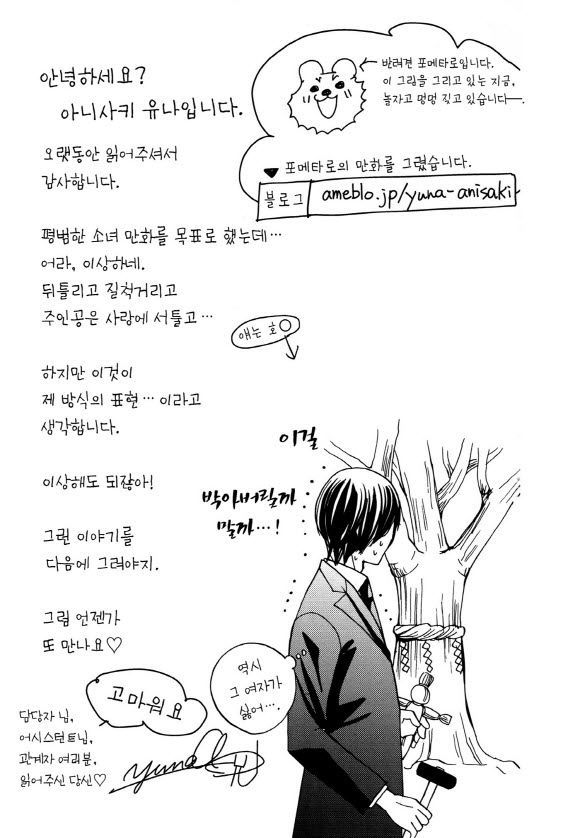 안녕하세요?
아니사키 유나입니다.
반려견 포메타로입니다.
이 그림을 그리고 있는 지금,
놀자고 멍멍 짖고 있습니다—.
♥ 포메타로의 만화를 그렸습니다.
블로그 ameblo.jp/yuna-anisaki
오랫동안 읽어주셔서
감사합니다.
평범한 소녀 만화를 목표로 했는데…
어라, 이상하네.
뒤틀리고 질척거리고
주인공은 사랑에 서툴고…
얘는 호○
하지만 이것이
제 방식의 표현…이라고
생각합니다.
이상해도 되잖아!
그런 이야기를
다음에 그려야지.
그럼 언젠가
또 만나요♡
이걸
박아버릴까
말까…!
역시
그 여자가
싫어….
고마워요
담당자 님,
어시스턴트님,
관계자 여러분,
읽어주신 당신♡
yuna